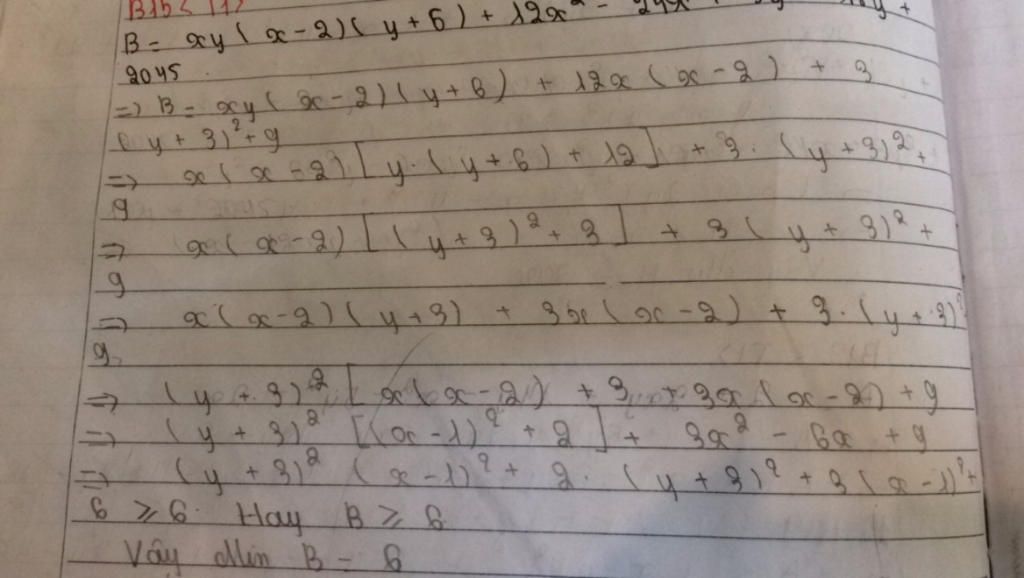 B = xy(x-2)(y+6) + 12x² - 24x
2045
=> B = xy(x-2)(y+6) + 12x(x-2) + 3
(y+3)²+9
=> x(x-2)[y.(y+6)+12] + 3.(y+3)²+
9
=> x(x-2)[(y+3)²+3] + 3(y+3)²+
9
=> x(x-2)(y+3) + 3x(x-2) + 3.(y+3)²
9
=> (y+3)²[x(x-2) + 3 + 3x(x-2) + 9
=> (y+3)²[(x-1)²+2] + 3x² - 6x + 9
=> (y+3)² (x-1)² + 2.(y+3)² + 3(x-1)²+
6 ≥ 6. Hay B ≥ 6
Vây Min B = 6